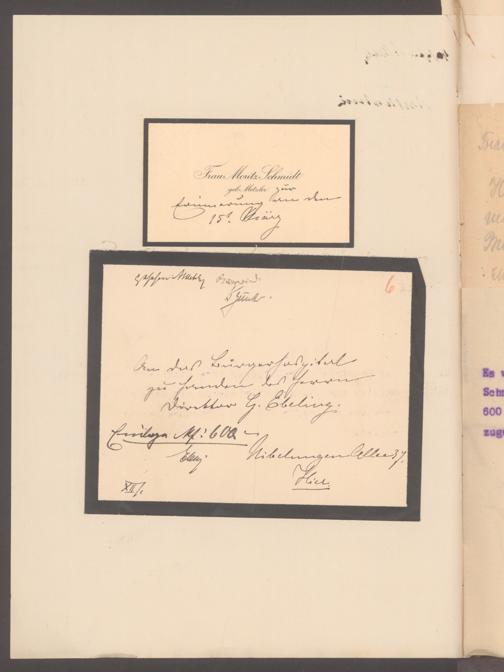 Frau Moritz Schmidt
geb. Metzler
zur
Erinnerung an den
15t. März
6
An das Bürgerhospital
zu Handen des Herrn
Direktor G. Ebeling.
Einlage M: 600.–
Nibelungen Allee 37.
Hier
XII/1.
Es w
Schm
600
zuge